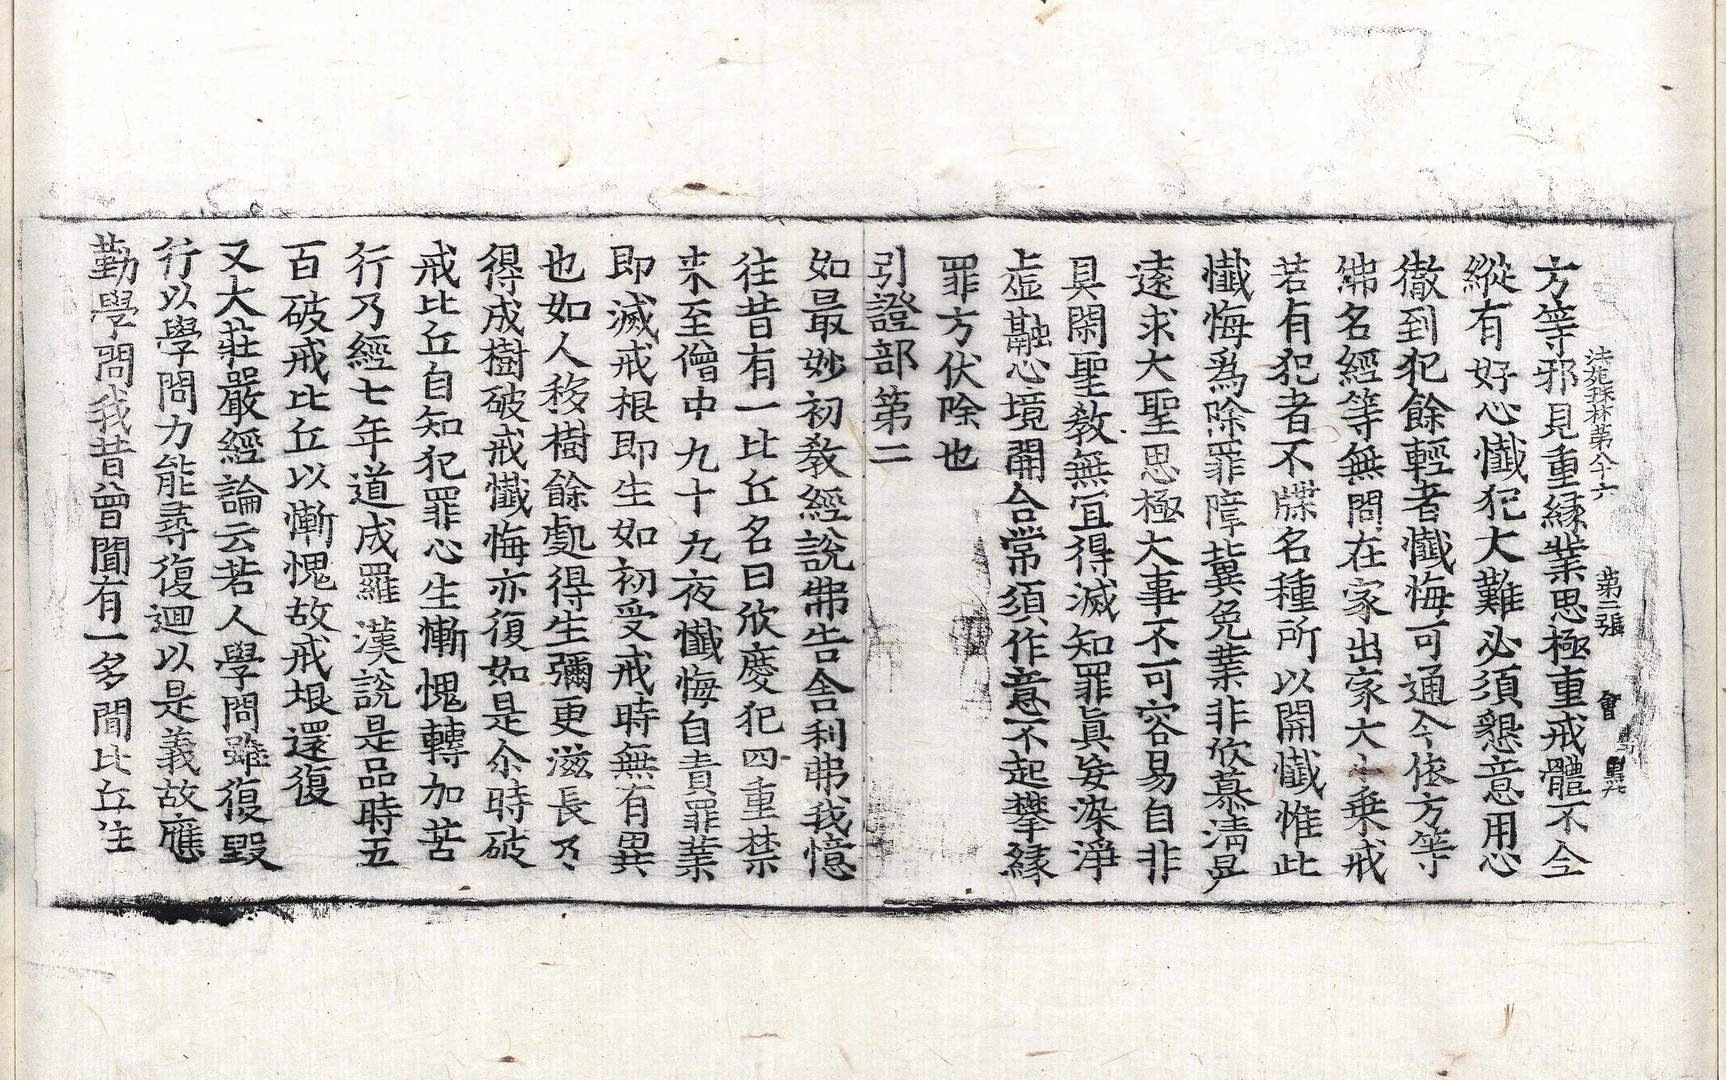 法苑珠林第八十六 第二張 會
方等邪見重緣業思極重戒體不全
縱有好心懺犯大難必須懇意用心
徹到犯餘輕者懺悔可通今依方等
佛名經等無問在家出家大小乘戒
若有犯者不牒名種所以開懺惟此
懺悔爲除罪障冀免業非欣慕清昇
遠求大聖思極大事不可容易自非
具閑聖教無宜得滅知罪眞妄染淨
虛融心境開合常須作意不起攀緣
罪方伏除也
引證部第二
如最妙初教經說佛告舍利弗我憶
往昔有一比丘名曰欣慶犯四重禁
來至僧中九十九夜懺悔自責罪業
即滅戒根即生如初受戒時無有異
也如人移樹餘處得生彌更滋長乃
得成樹破戒懺悔亦復如是尒時破
戒比丘自知犯罪心生慚愧轉加苦
行乃經七年道成羅漢說是品時五
百破戒比丘以慚愧故戒根還復
又大莊嚴經論云若人學問雖復毀
行以學問力能尋復迴以是義故應
勤學問我昔曾聞有一多聞比丘住